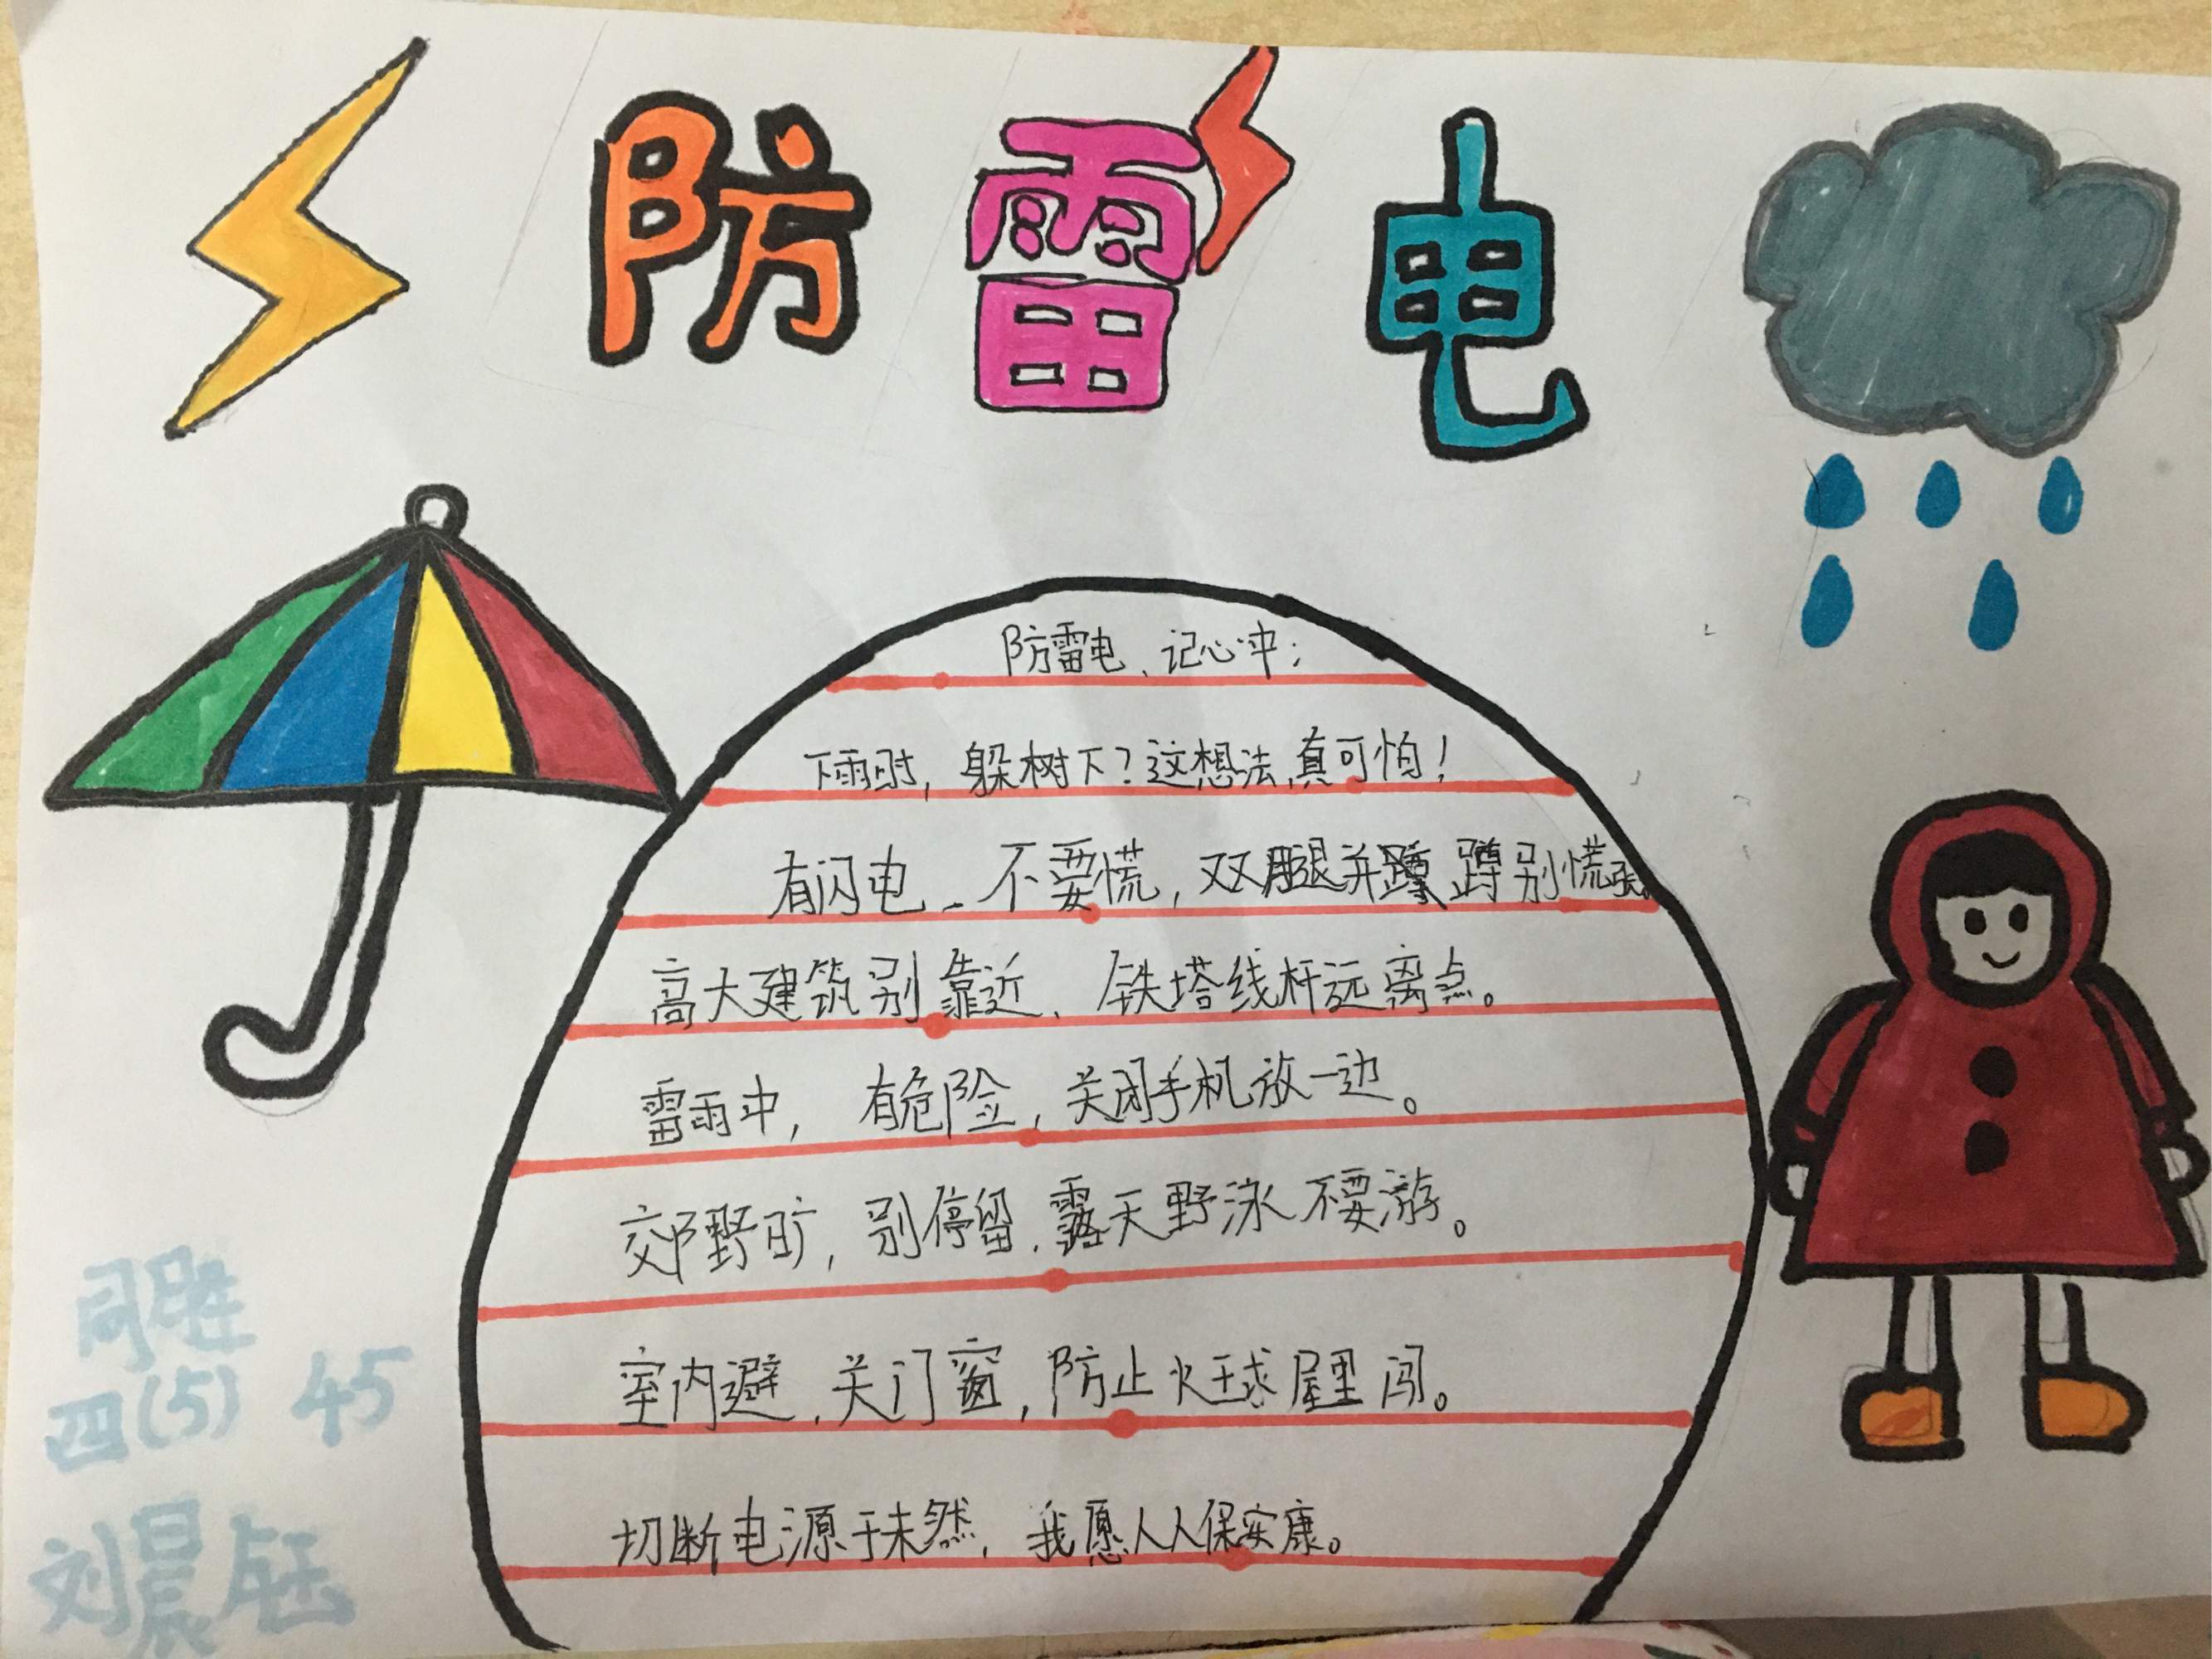 防雷电
防雷电、记心中;
下雨时,躲树下?这想法,真可怕!
有闪电、不要慌,双腿并蹲别慌张。
高大建筑别靠近、铁塔线杆远离点。
雷雨中,有危险,关闭手机放一边。
郊野旷,别停留,露天野泳不要游。
室内避,关门窗,防止火球屋里闯。
切断电源于未然,我愿人人保安康。
同胜
四(5) 45
刘晨